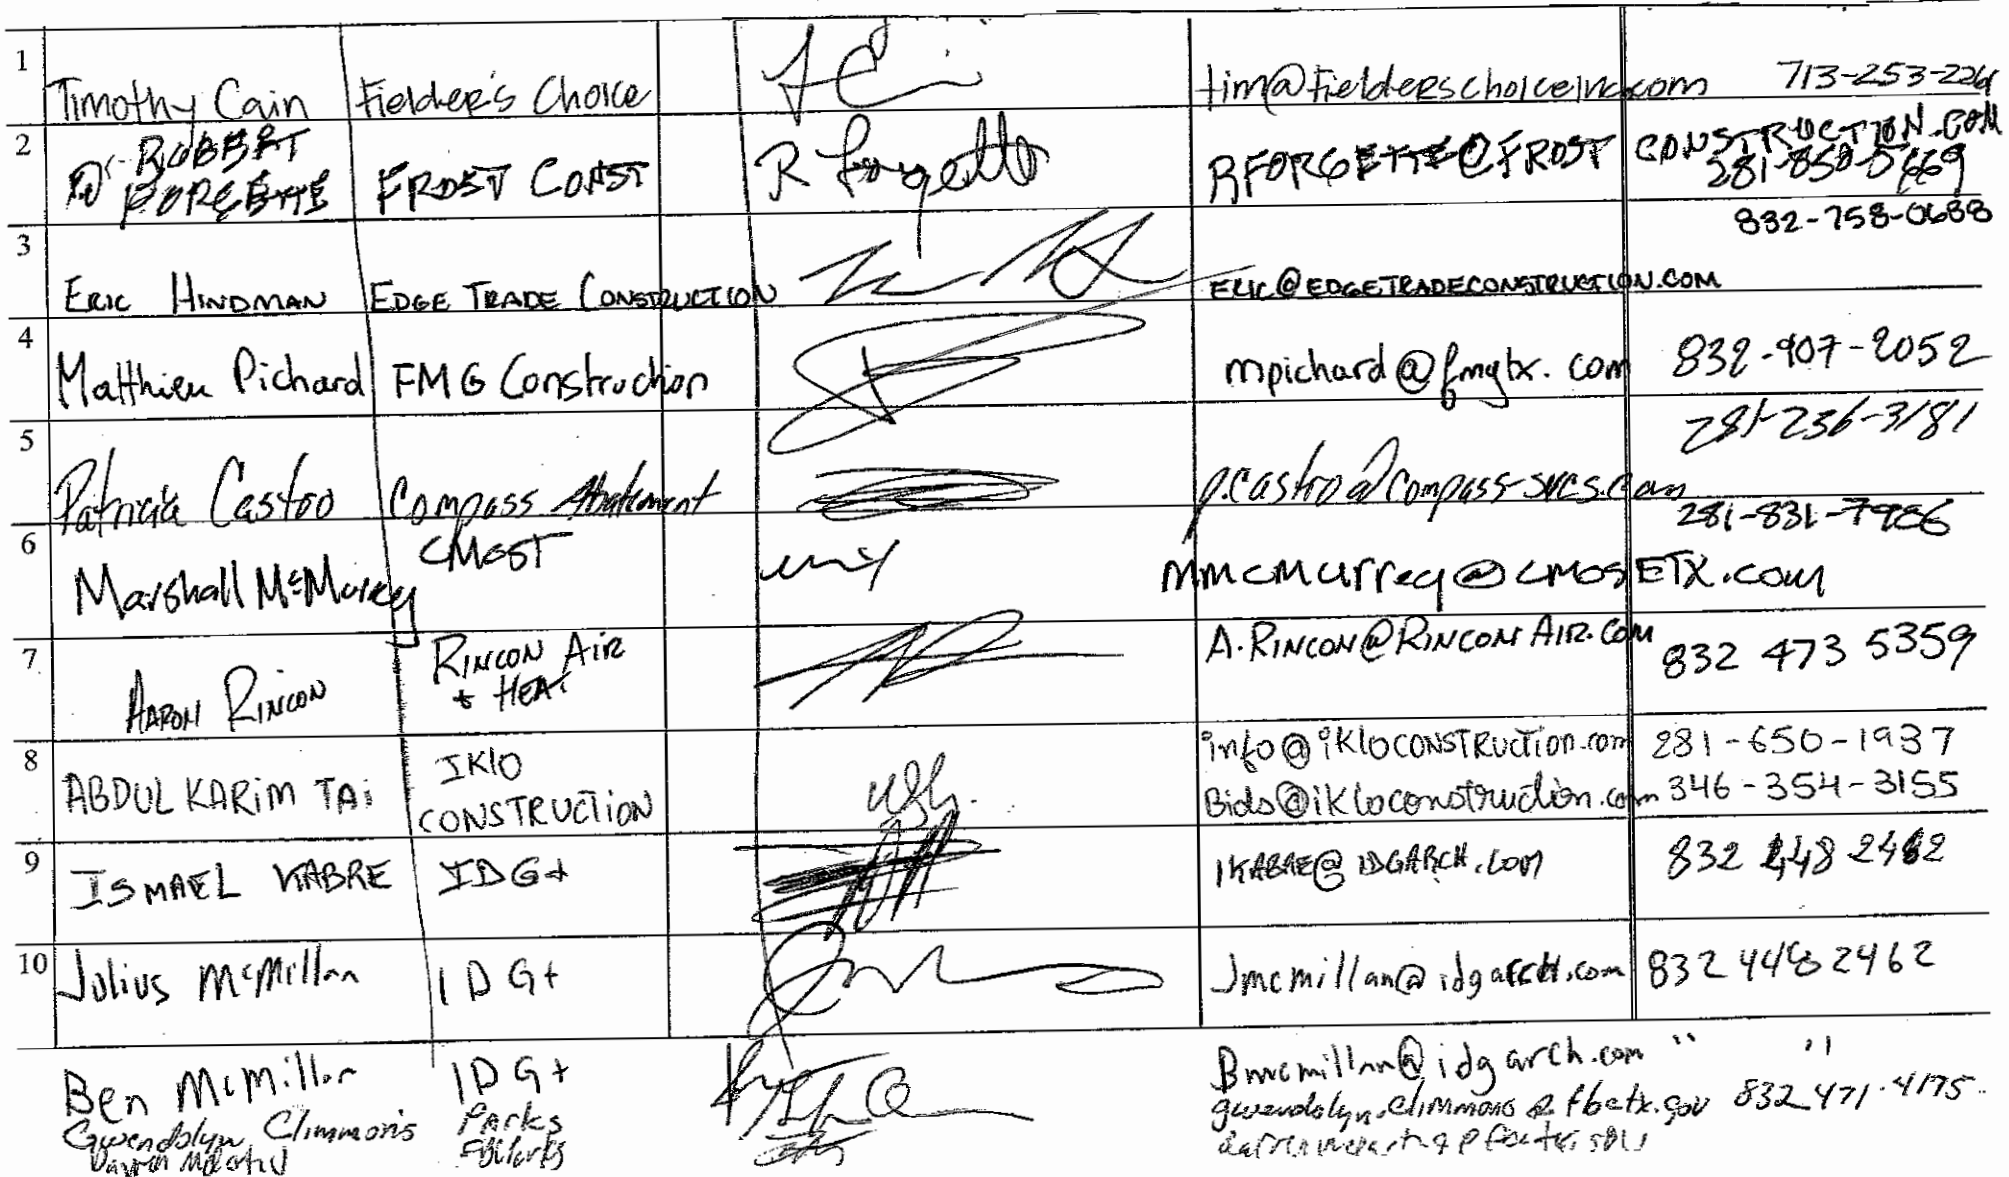 1 Timothy Cain Fielder's Choice tim@fielderschoiceinc.com 713-253-226
2 ROBERT FORGETTE FROST CONST R Forgette RFORGETTE@FROST CONSTRUCTION.COM
281-850-5669
832-758-0688
3 ERIC HINDMAN EDGE TRADE CONSTRUCTION ERIC@EDGETRADECONSTRUCTION.COM
4 Matthieu Pichard FMG Construction mpichard@fmgtx.com 832-907-2052
281-236-3181
5 Patricia Castro Compass Abatement p.castro@compass-svcs.com
281-831-7986
6 Marshall McMurrey CMOST mmcmurrey@cmosETX.com
7 AARON RINCON RINCON AIR A.RINCON@RINCONAIR.COM 832 473 5359
+ HEAT
8 ABDUL KARIM TAi IKlO info@iKloCONSTRUCTION.com 281-650-1937
CONSTRUCTION Bids@iKloconstruction.com 346-354-3155
9 ISMAEL KABRE IDG+ IKABRE@IDGARCH.COM 832 448 2462
10 Julius McMillan IDG+ Jmcmillan@idgarch.com 832 448 2462
Ben McMillan IDG+ Bmcmillan@idgarch.com " "
Gwendolyn Climmons Parks gwendolyn.climmons@fbctx.gov 832 471-4175